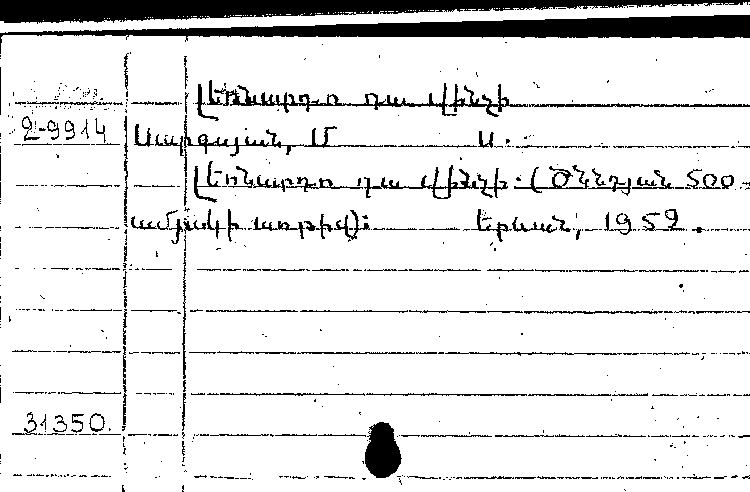 Լեոնարդո դա Վինչի
2-9914 Սարգսյան, Մ Ս.
Լեոնարդո դա Վինչի. (Ծննդյան 500-
ամյակի առթիվ): Երևան, 1952.
31350.